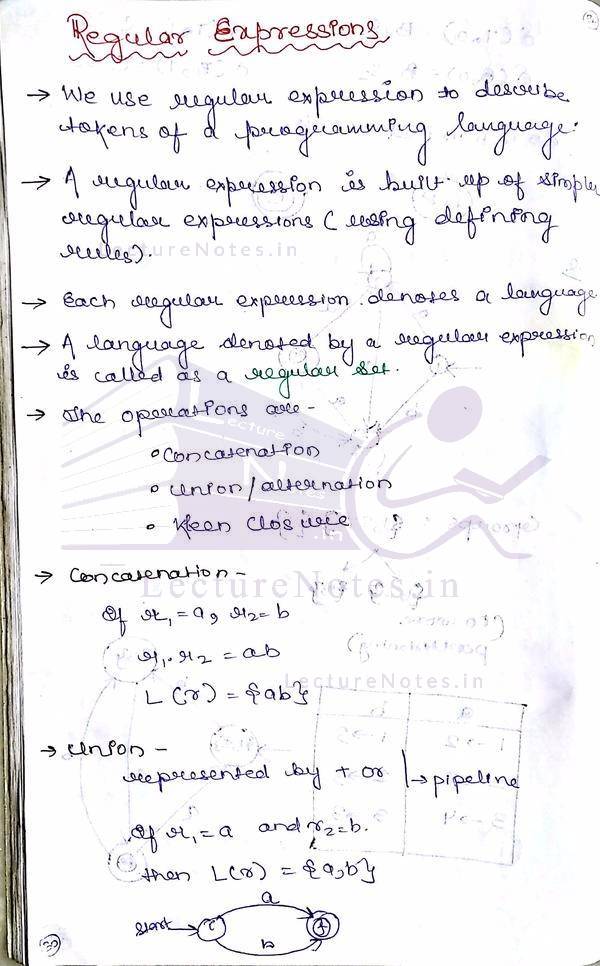 Regular Expressions
→ We use regular expression to describe
tokens of a programming language.
→ A regular expression is built up of simple
regular expressions (using defining
LectureNotes.in
rules).
→ Each regular expression denotes a language
→ A language denoted by a regular expression
is called as a regular set.
→ The operations are -
Lecture
Concatenation
N
Union/alternation
Kleen Closure
.in
→ Concatenation -
LectureNotes.in
If r₁ = a, r₂ = b
r₁.r₂ = ab
L(r) = {ab}
LectureNotes.in
→ Union -
represented by + or | → pipeline
If r₁ = a and r₂ = b.
then L(r) = {a,b}
a
start → i f
b